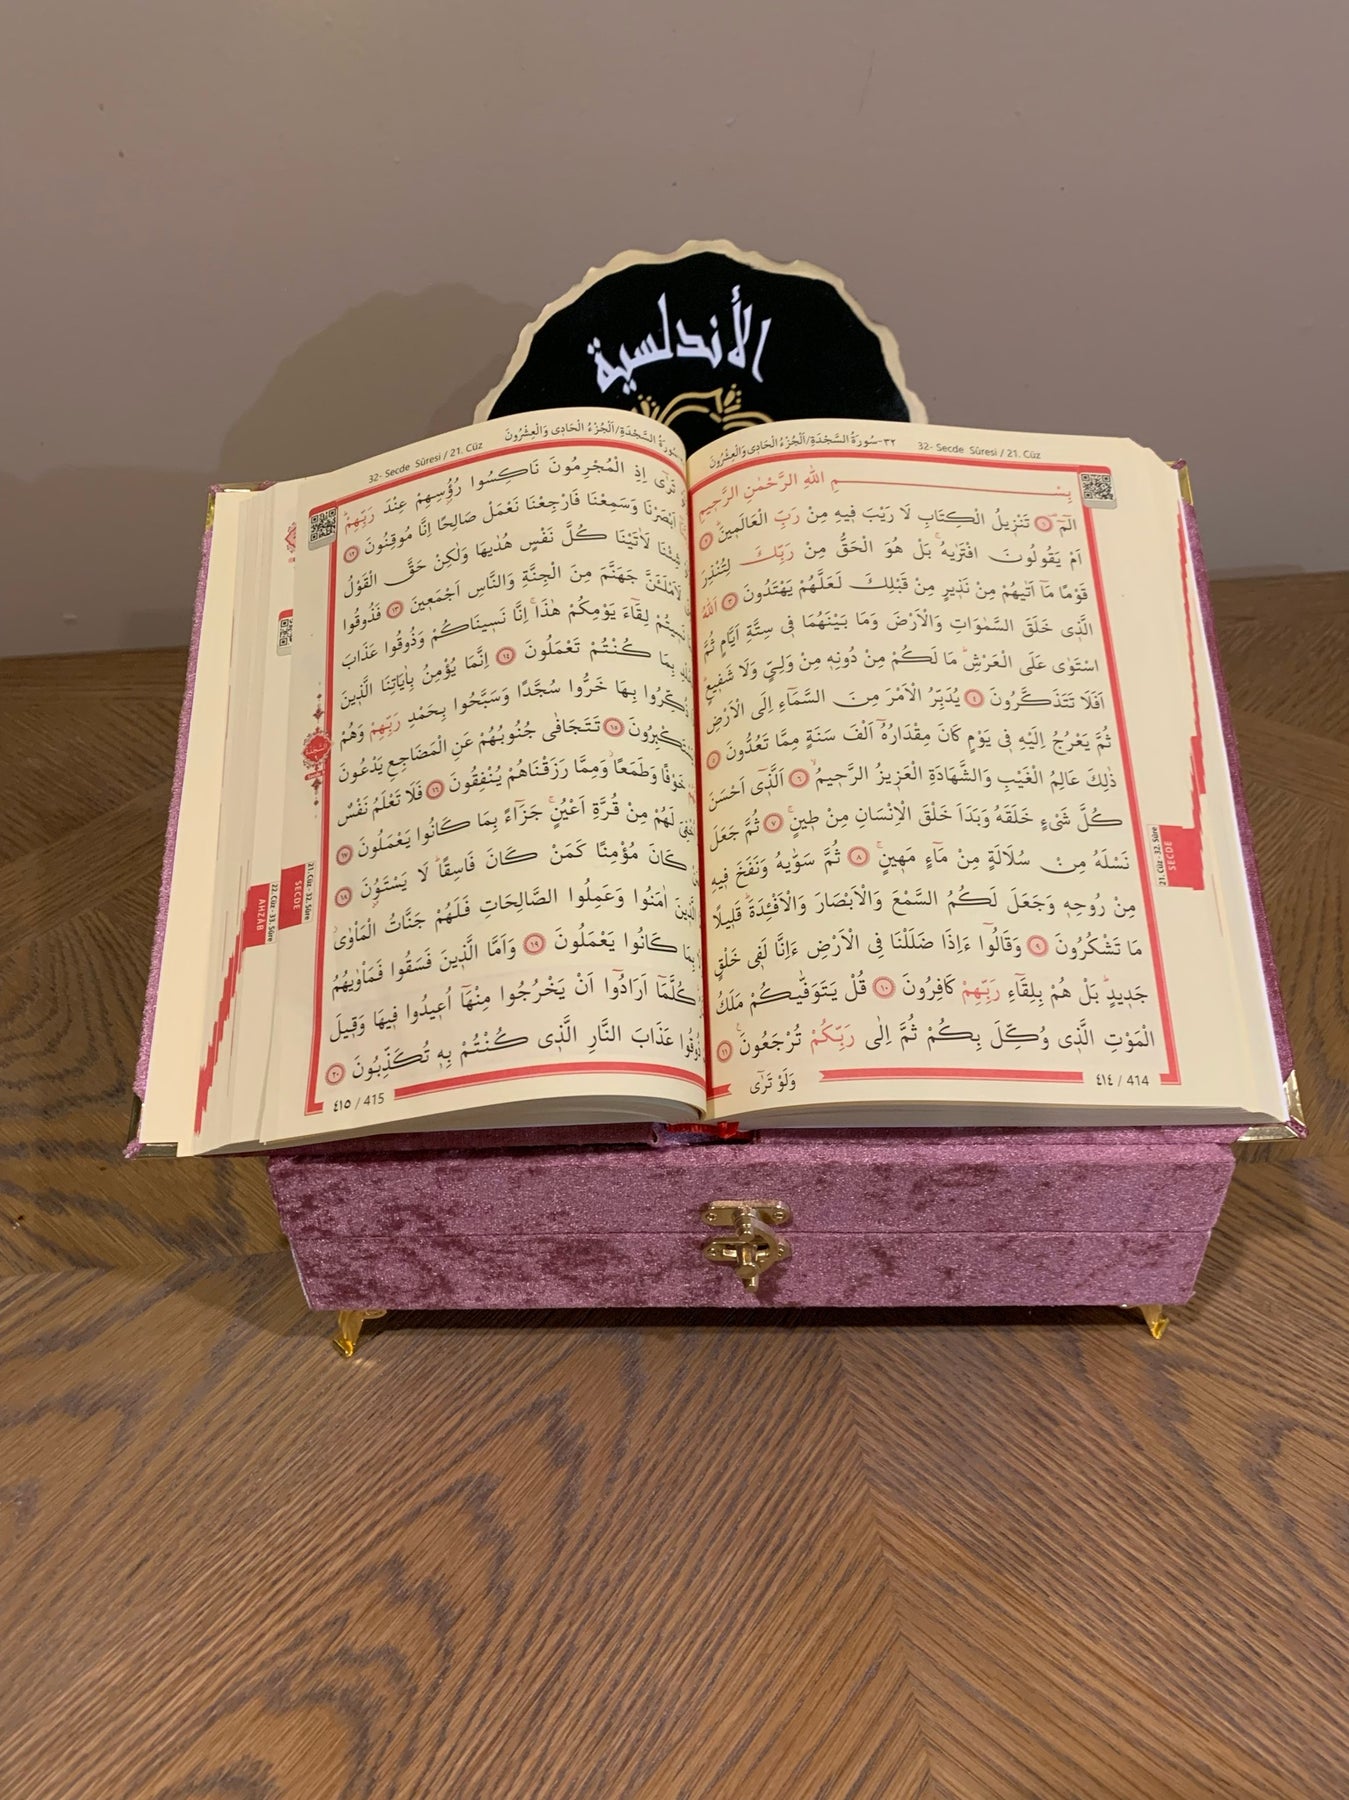 الأندلسية
٣٢-سُورَةُ السَّجْدَةِ/اَلْجُزْءُ الْحَادِى وَالْعِشْرُونَ
32- Secde Sûresi / 21. Cüz
بِسْمِ اللّٰهِ الرَّحْمٰنِ الرَّحِيمِ
الٓمٓ ١ تَنْزِيلُ الْكِتَابِ لَا رَيْبَ فِيهِ مِنْ رَبِّ الْعَالَمِينَ ٢
اَمْ يَقُولُونَ افْتَرٰيهُ بَلْ هُوَ الْحَقُّ مِنْ رَبِّكَ لِتُنْذِرَ
قَوْمًا مَٓا اَتٰيهُمْ مِنْ نَذِيرٍ مِنْ قَبْلِكَ لَعَلَّهُمْ يَهْتَدُونَ ٣ اَللّٰهُ
الَّذِى خَلَقَ السَّمٰوَاتِ وَالْاَرْضَ وَمَا بَيْنَهُمَا فِى سِتَّةِ اَيَّامٍ ثُمَّ
اسْتَوٰى عَلَى الْعَرْشِ مَا لَكُمْ مِنْ دُونِهِ مِنْ وَلِىٍّ وَلَا شَفِيعٍ
اَفَلَا تَتَذَكَّرُونَ ٤ يُدَبِّرُ الْاَمْرَ مِنَ السَّمَٓاءِ اِلَى الْاَرْضِ
ثُمَّ يَعْرُجُ اِلَيْهِ فِى يَوْمٍ كَانَ مِقْدَارُهُٓ اَلْفَ سَنَةٍ مِمَّا تَعُدُّونَ ٥
ذٰلِكَ عَالِمُ الْغَيْبِ وَالشَّهَادَةِ الْعَزِيزُ الرَّحِيمُ ٦ اَلَّذِٓى اَحْسَنَ
كُلَّ شَىْءٍ خَلَقَهُ وَبَدَاَ خَلْقَ الْاِنْسَانِ مِنْ طِينٍ ٧ ثُمَّ جَعَلَ
نَسْلَهُ مِنْ سُلَالَةٍ مِنْ مَٓاءٍ مَهِينٍ ٨ ثُمَّ سَوّٰيهُ وَنَفَخَ فِيهِ
مِنْ رُوحِهِ وَجَعَلَ لَكُمُ السَّمْعَ وَالْاَبْصَارَ وَالْاَفْـِٔدَةَ قَلِيلًا
مَا تَشْكُرُونَ ٩ وَقَالُٓوا ءَاِذَا ضَلَلْنَا فِى الْاَرْضِ ءَاِنَّا لَفِى خَلْقٍ
جَدِيدٍ بَلْ هُمْ بِلِقَٓاءِ رَبِّهِمْ كَافِرُونَ ١٠ قُلْ يَتَوَفّٰيكُمْ مَلَكُ
الْمَوْتِ الَّذِى وُكِّلَ بِكُمْ ثُمَّ اِلٰى رَبِّكُمْ تُرْجَعُونَ ١١
وَلَوْ تَرٰٓى
٤١٤ / 414
21. Cüz - 32. Sûre
SECDE
سُورَةُ السَّجْدَةِ/اَلْجُزْءُ الْحَادِى وَالْعِشْرُونَ
32- Secde Sûresi / 21. Cüz
تَرٰٓى اِذِ الْمُجْرِمُونَ نَاكِسُوا رُؤُسِهِمْ عِنْدَ رَبِّهِمْ
اَبْصَرْنَا وَسَمِعْنَا فَارْجِعْنَا نَعْمَلْ صَالِحًا اِنَّا مُوقِنُونَ ١٢
شِئْنَا لَاٰتَيْنَا كُلَّ نَفْسٍ هُدٰيهَا وَلٰكِنْ حَقَّ الْقَوْلُ
لَاَمْلَـَٔنَّ جَهَنَّمَ مِنَ الْجِنَّةِ وَالنَّاسِ اَجْمَعِينَ ١٣ فَذُوقُوا
لِقَٓاءَ يَوْمِكُمْ هٰذَا اِنَّا نَسِينَاكُمْ وَذُوقُوا عَذَابَ
بِمَا كُنْتُمْ تَعْمَلُونَ ١٤ اِنَّمَا يُؤْمِنُ بِاٰيَاتِنَا الَّذِينَ
بِهَا خَرُّوا سُجَّدًا وَسَبَّحُوا بِحَمْدِ رَبِّهِمْ وَهُمْ
١٥ تَتَجَافٰى جُنُوبُهُمْ عَنِ الْمَضَاجِعِ يَدْعُونَ
خَوْفًا وَطَمَعًا وَمِمَّا رَزَقْنَاهُمْ يُنْفِقُونَ ١٦ فَلَا تَعْلَمُ نَفْسٌ
لَهُمْ مِنْ قُرَّةِ اَعْيُنٍ جَزَٓاءً بِمَا كَانُوا يَعْمَلُونَ ١٧
كَانَ مُؤْمِنًا كَمَنْ كَانَ فَاسِقًا لَا يَسْتَوُنَ ١٨
اٰمَنُوا وَعَمِلُوا الصَّالِحَاتِ فَلَهُمْ جَنَّاتُ الْمَاْوٰى
بِمَا كَانُوا يَعْمَلُونَ ١٩ وَاَمَّا الَّذِينَ فَسَقُوا فَمَاْوٰيهُمُ
كُلَّمَٓا اَرَادُٓوا اَنْ يَخْرُجُوا مِنْهَٓا اُعِيدُوا فِيهَا وَقِيلَ
عَذَابَ النَّارِ الَّذِى كُنْتُمْ بِهِ تُكَذِّبُونَ ٢٠
٤١٥ / 415
21. Cüz - 32. Sûre
SECDE
22. Cüz - 33. Sûre
AHZAB